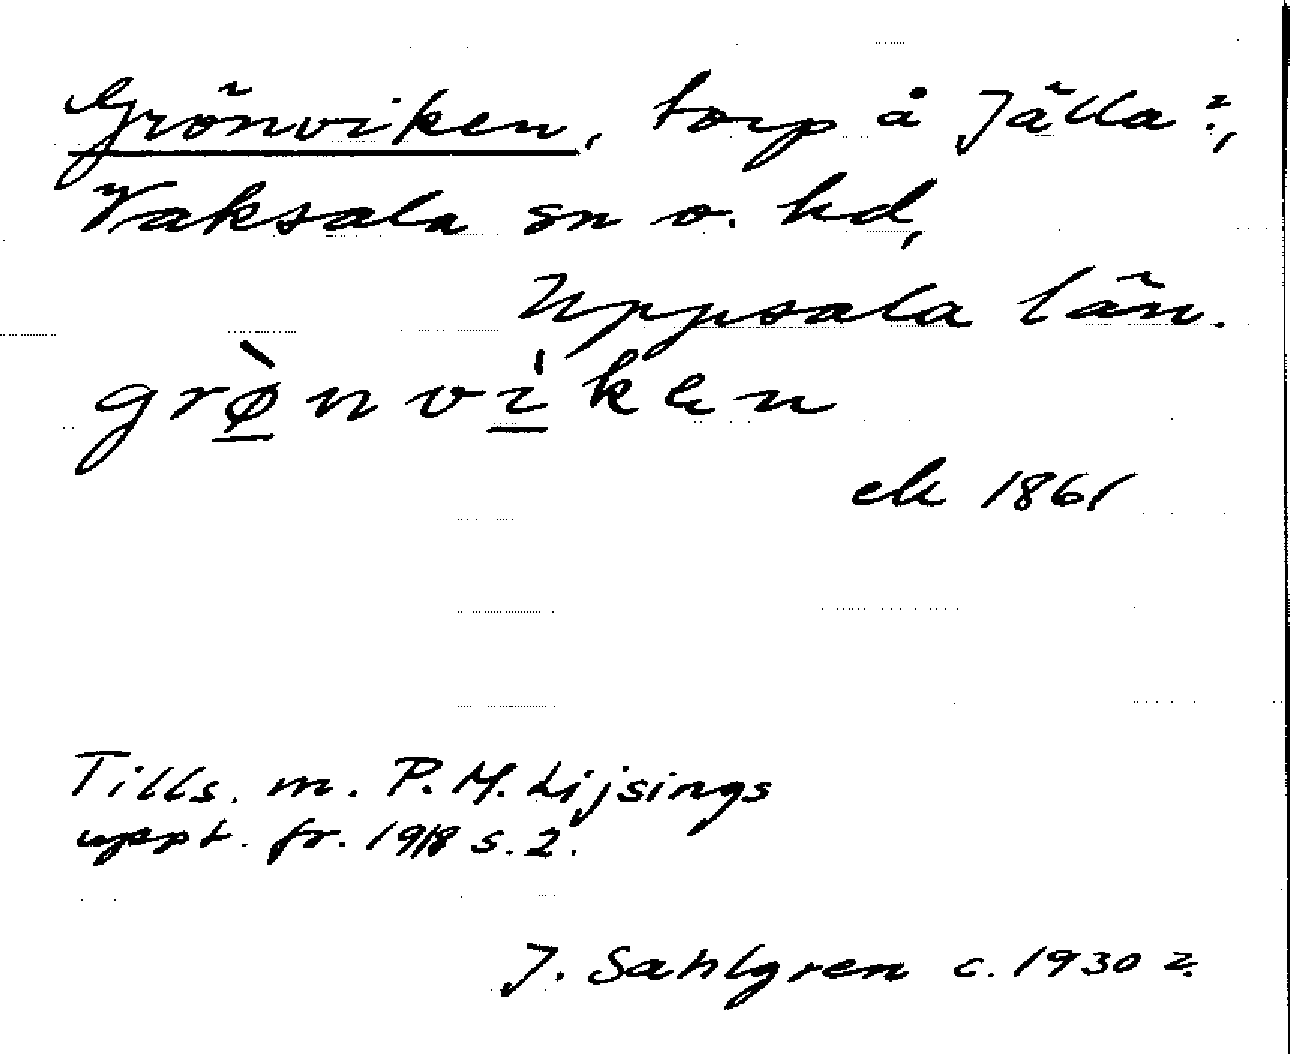 Grönviken, torp å Jälla?,
Vaksala sn o. hd,
Uppsala län.
grø̀nvíken
ek 1861
Tills. m. P. M. Lijsings
uppt. fr. 1918 s. 2.
J. Sahlgren c. 1930?